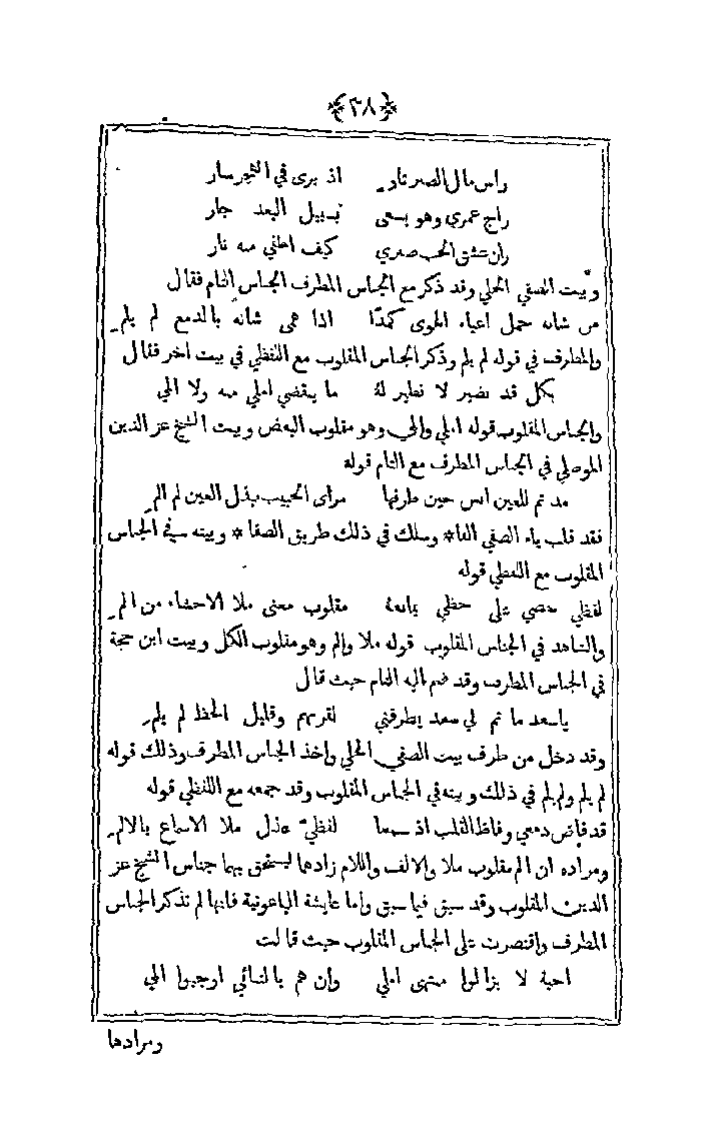 ﴿٣٨﴾
راس مال الصبر اذ يرى في الشجر سار
راج عمري وهو يسعى لسبيل البعد جار
ران عشق الحب صدري كيف اطفي منه نار
وبيت الصفي الحلي وقد ذكر مع الجناس المطرف الجناس التام فقال
من شانه حمل اعباء الهوى كمدًا اذا همى شانه بالدمع لم يلم
والمطرف في قوله لم يلم وذكر الجناس المقلوب مع اللفظي في بيت اخر فقال
بكل قد نضير لا نظير له ما ينقضي املي منه ولا المي
والجناس المقلوب قوله املي والمي وهو مقلوب البعض وبيت الشيخ عز الدين
الموصلي في الجناس المطرف مع التام قوله
مذ تم للعين انس حين طرفها مراى الحبيب بذل العين لم الم
فقد قلب ياء الصفي الفا * وسلك في ذلك طريق الصفا * وبيته في الجناس
المقلوب مع اللفظي قوله
لفظي حضي على حظي يمانعه مقلوب معنى ملا الاحشاء من الم
والشاهد في الجناس المقلوب قوله ملا والم وهو مقلوب الكل وبيت ابن حجة
في الجناس المطرف وقد ضم اليه التام حيث قال
ياسعد ما تم لي سعد يطرفني لقربهم وقليل الحظ لم يلم
وقد دخل من طرف بيت الصفي الحلي واخذ الجناس المطرف وذلك قوله
لم يلم ولم يلم في ذلك وبيته في الجناس المقلوب وقد جمعه مع اللفظي قوله
قد فاض دمعي وفاظ القلب اذ سمعا لفظي عذل ملا الاسماع بالالم
ومراده ان الم مقلوب ملا والالف واللام زادها ليستحق بهما جناس الشيخ عز
الدين المقلوب وقد سبق فيما سبق واما عايشة الباعونية فانها لم تذكر الجناس
المطرف واقتصرت على الجناس المقلوب حيث قالت
احبة لا يزالوا منتهى املي وان هم بالتنائي اوجبوا المي
ومرادها